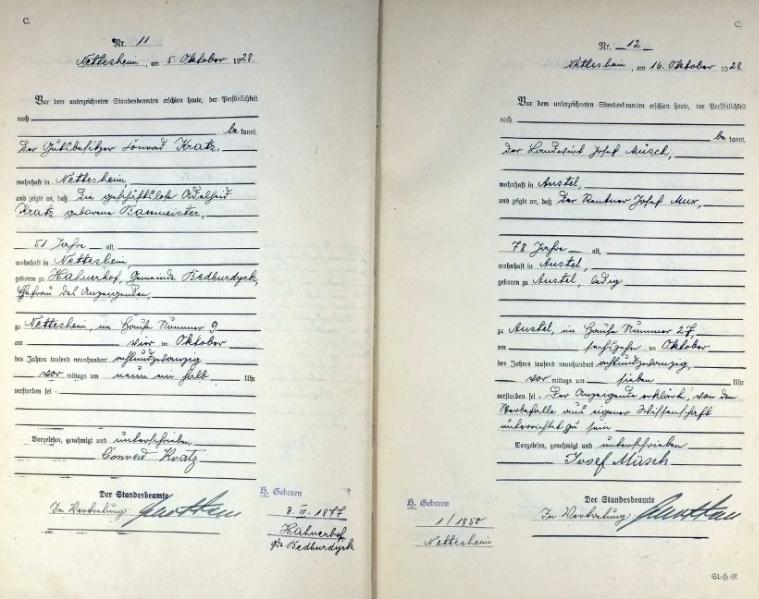 C.
Nr. 11
Nettesheim, am 5. Oktober 1928.
Vor dem unterzeichneten Standesbeamten erschien heute, der Persönlichkeit
nach
be kannt,
Der Gutsbesitzer Conrad Kratz,
wohnhaft in Nettesheim,
und zeigte an, daß die geschäftslose Adelheid
Kratz geborene Baumeister,
51 Jahre alt,
wohnhaft in Nettesheim,
geboren zu Hahnerhof, Gemeinde Bedburdyck,
Ehefrau des Anzeigenden,
zu Nettesheim, im Hause Nummer 9
am vier ten Oktober
des Jahres tausend neunhundert achtundzwanzig
vor mittags um neun ein halb Uhr
verstorben sei.
Vorgelesen, genehmigt und unterschrieben
Conrad Kratz
Der Standesbeamte
In Vertretung:
H. Geboren
1877
Hahnerhof
Bedburdyck
C.
Nr. 12
Nettesheim, am 16. Oktober 1928.
Vor dem unterzeichneten Standesbeamten erschien heute, der Persönlichkeit
nach
be kannt,
der Landwirt Josef Müsch,
wohnhaft in Anstel,
und zeigte an, daß der Rentner Josef Mux,
78 Jahre alt,
wohnhaft in Anstel,
geboren zu Anstel, ledig
zu Anstel, im Hause Nummer 27,
am sechszehn ten Oktober
des Jahres tausend neunhundert achtundzwanzig,
vor mittags um sieben Uhr
verstorben sei. Der Anzeigende erklärte, von dem
Sterbefalle aus eigener Wissenschaft
unterrichtet zu sein
Vorgelesen, genehmigt und unterschrieben
Josef Müsch
Der Standesbeamte
In Vertretung:
H. Geboren
1/1850
Nettesheim